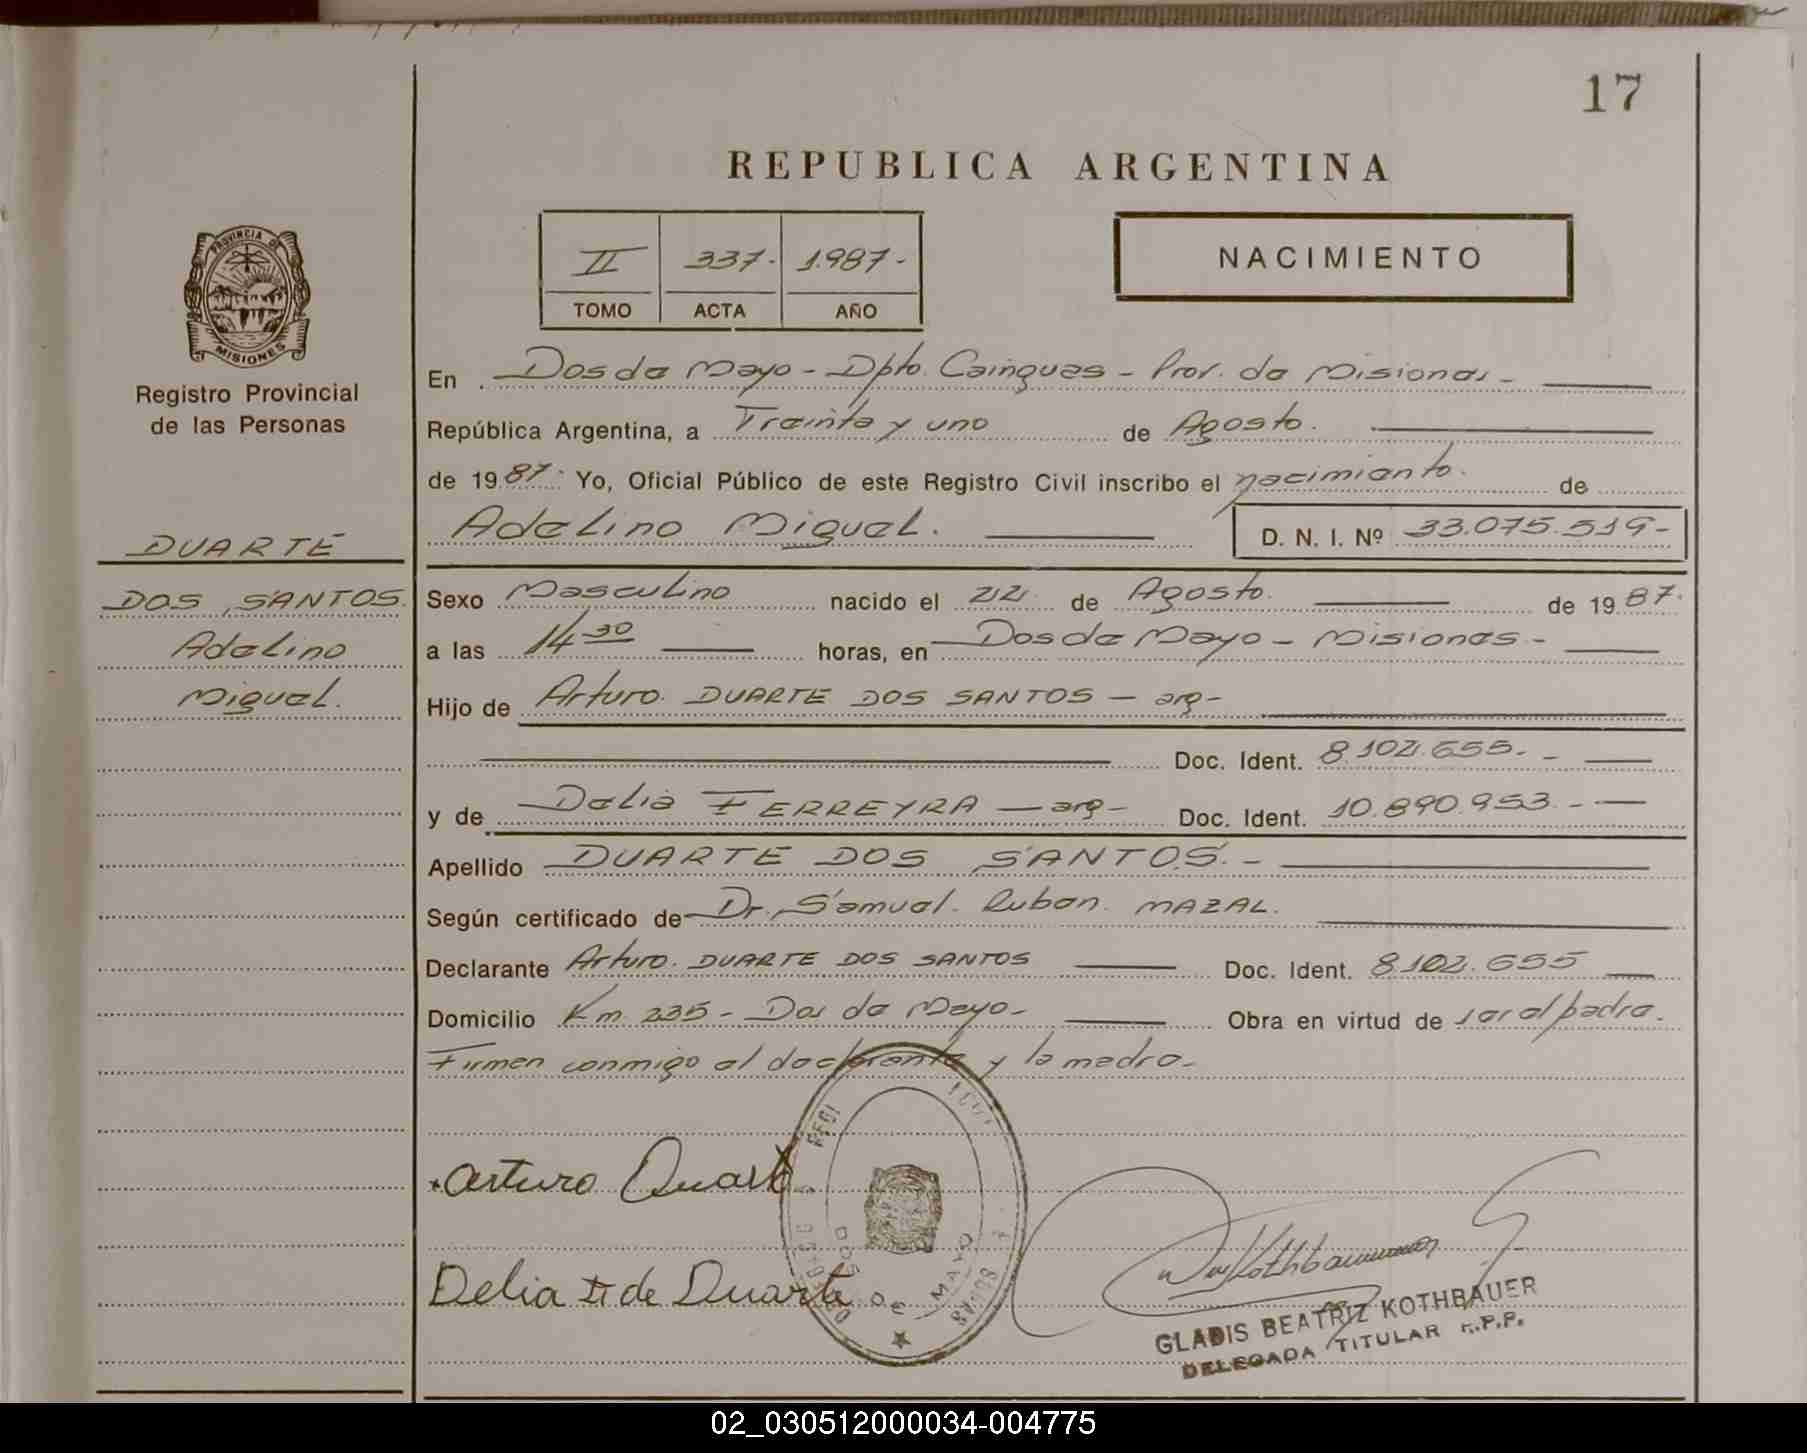 17
REPUBLICA ARGENTINA
II 337.- 1.987.-
TOMO ACTA AÑO
NACIMIENTO
PROVINCIA DE
MISIONES
Registro Provincial
de las Personas
DUARTE
DOS SANTOS
Adelino
Miguel.
En Dos de Mayo - Dpto. Cainguas - Prov. de Misiones -
República Argentina, a Treinta y uno de Agosto.
de 1987. Yo, Oficial Público de este Registro Civil inscribo el nacimiento. de
Adelino Miguel. D. N. I. Nº 33.075.519-
Sexo Masculino nacido el 22 de Agosto. de 1987.
a las 14 30 horas, en Dos de Mayo - Misiones.-
Hijo de Arturo. DUARTE DOS SANTOS - arg-
Doc. Ident. 8.102.655.-
y de Delia FERREYRA - arg- Doc. Ident. 10.890.953.-
Apellido DUARTE DOS SANTOS.-
Según certificado de Dr. Samuel. Ruben. MAZAL.
Declarante Arturo. DUARTE DOS SANTOS Doc. Ident. 8.102.655
Domicilio Km. 235 - Dos de Mayo- Obra en virtud de ser el padre.
Firman conmigo el declarante y la madre-
Arturo Duarte
Delia F de Duarte
DOS DE MAYO
Kothbauer
GLADIS BEATRIZ KOTHBAUER
DELEGADA TITULAR R.P.P.
02_030512000034-004775